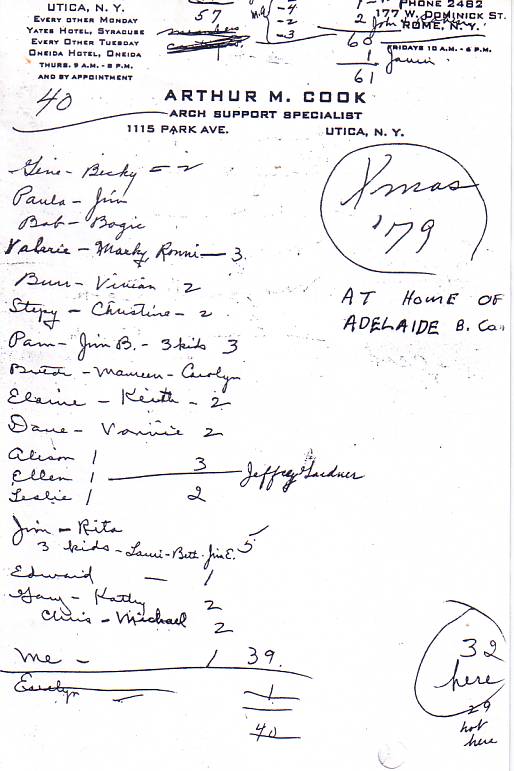 UTICA, N. Y.
EVERY OTHER MONDAY
YATES HOTEL, SYRACUSE
EVERY OTHER TUESDAY
ONEIDA HOTEL, ONEIDA
THURS. 9 A.M. - 8 P.M.
AND BY APPOINTMENT
57
-4
-2
-3
PHONE 2482
2 Jim 177 W. DOMINICK ST.
ROME, N. Y.
60
FRIDAYS 10 A.M. - 6 P.M.
1
61
40
ARTHUR M. COOK
ARCH SUPPORT SPECIALIST
1115 PARK AVE. UTICA, N. Y.
Gene - Becky = 2
Paula - Jim
Bob - Bogie
Valerie - Marky Ronni - 3
Burr - Vivian 2
Xmas
'79
AT HOME OF
ADELAIDE B. Co
Stepy - Christine - 2
Pam - Jim B. - 3 kids 3
- Maureen - Carolyn
Elaine - Keith - 2
Dave - Vonnie 2
Alison 1
Ellen 1 3 Jeffrey Gardner
Leslie 1 2
Jim - Rita
3 kids - Lauri - Beth - Jim E. 5
Edward - 1
Gary - Kathy 2
Chris - Michael 2
Me - 1 39.
Evelyn 1
40
32
here
29
not
here